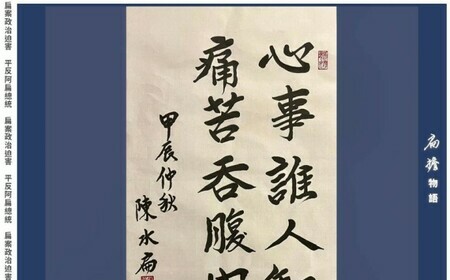 物語
心事誰人
痛苦吞腹
甲辰仲秋
陳水扁
扁案政治迫害 平反阿扁總統 扁案政治迫害 平反阿扁總統 扁案政治迫害